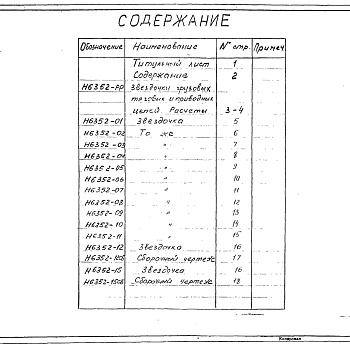 СОДЕРЖАНИЕ
Обозначение Наименование № стр. Примеч.
Титульный лист 1
Содержание 2
Н6352-РР Звездочки грузовых
тяговых и приводных
цепей. Расчеты 3-4
Н6352-01 Звездочка 5
Н6352-02 То же 6
Н6352-03 " 7
Н6352-04 " 8
Н6352-05 " 9
Н6352-06 " 10
Н6352-07 " 11
Н6352-08 " 12
Н6352-09 " 13
Н6352-10 " 14
Н6352-11 " 15
Н6352-12 Звездочка 16
Сборочный чертеж 17
Н6352-15 Звездочка
Н6352-15СБ Сборочный чертеж
Копировал